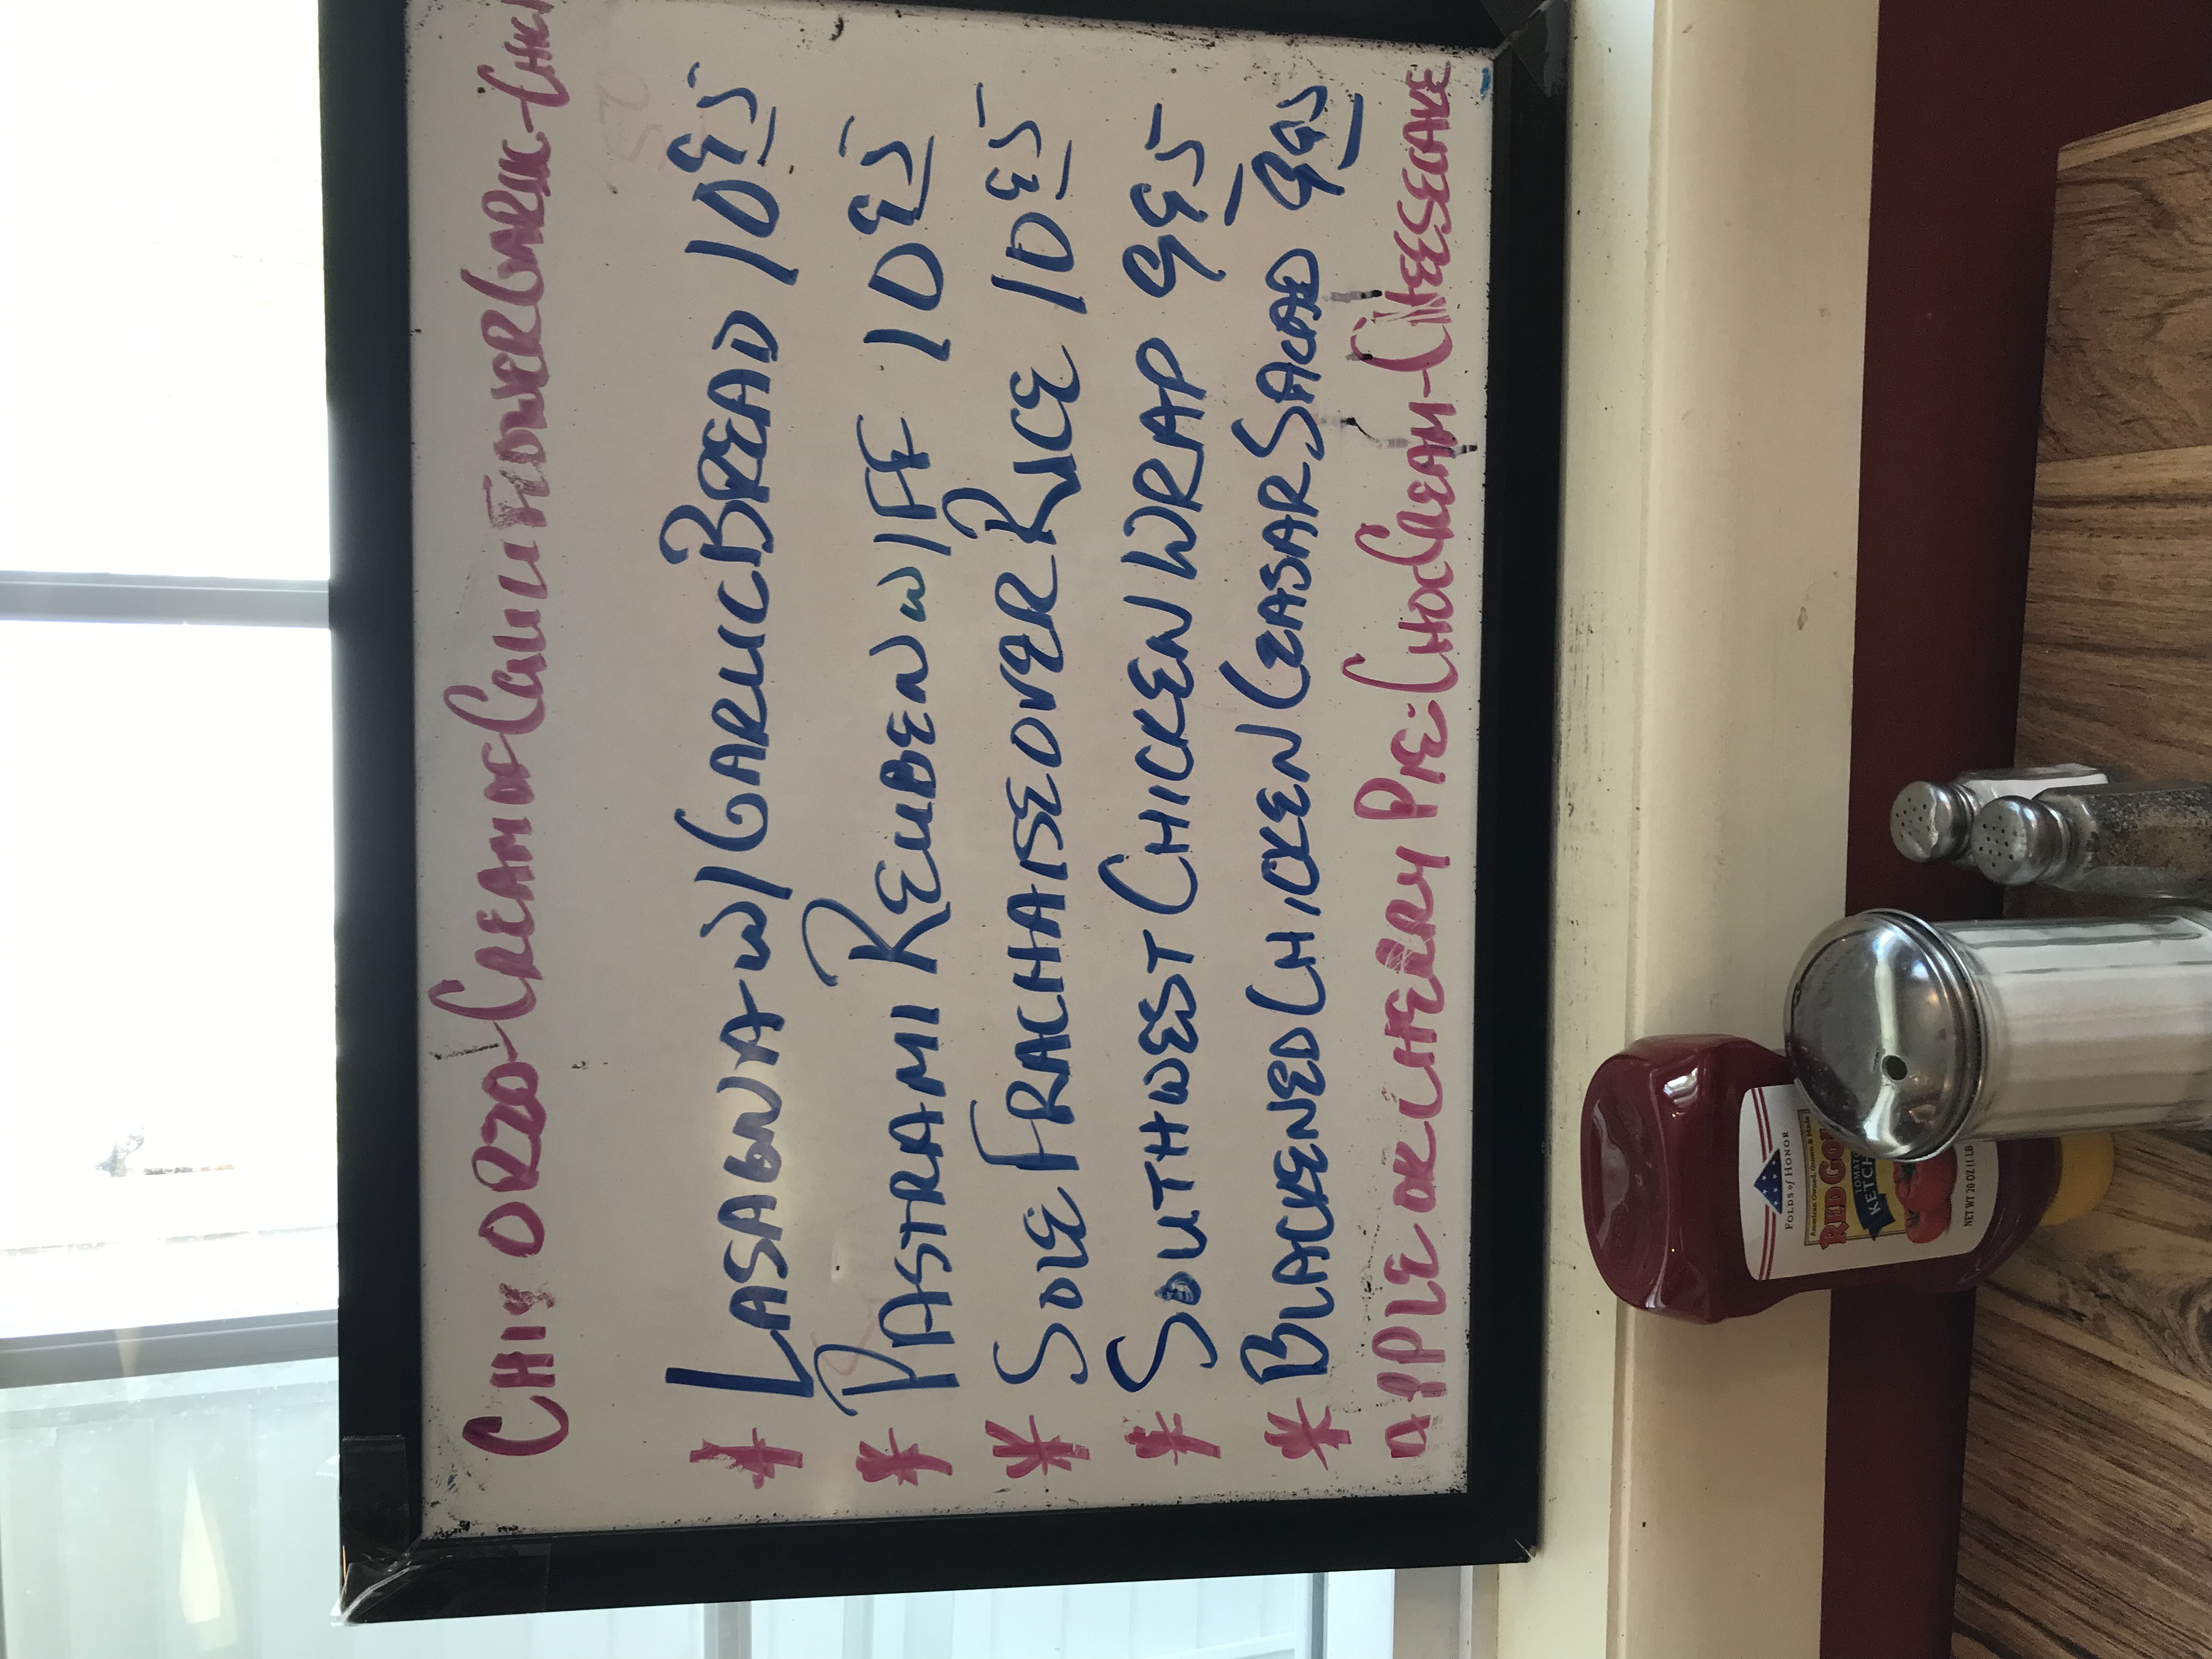 CHIX ORZO-CREAM OF CAULIFLOWER GARLIC-CHIX
* LASAGNA-W/GARLIC BREAD 10 95
* PASTRAMI REUBEN W/FF 10 95
* SOLE FRACHAISE OVER RICE 10 95
* SOUTHWEST CHICKEN WRAP 9 95
* BLACKENED CHICKEN CEASAR SALAD 9 95
APPLE OR CHERRY PIE-CHOC CREAM-CHEESECAKE
FOLDS of HONOR
American Owned, Grown & Made
RED GO
TOMATO
KETCH
NET WT 20 OZ (1 LB